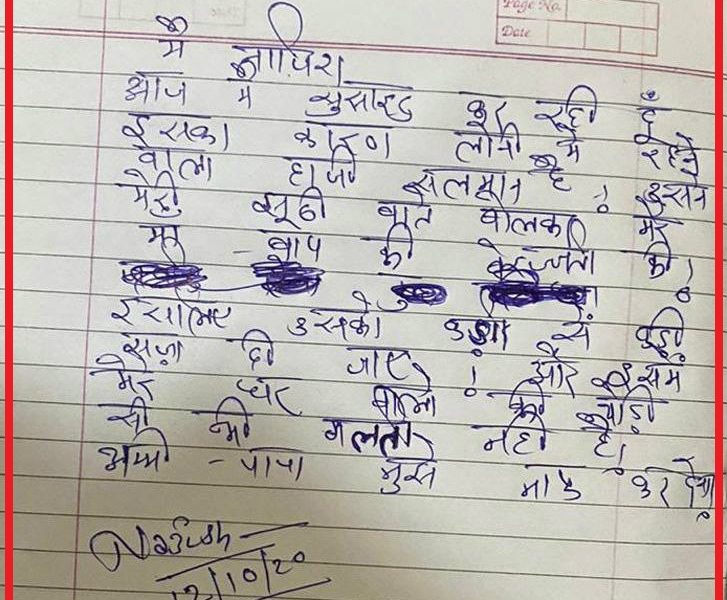 Page No.
Date
मैं नाफिश
आज मैं सुसाइड कर रही हूँ
इसका कारण लोनी में रहने
वाला हाजी सलमान है ! उसने
मेरी झूठी बात बोलकर मेरे
माँ - बाप की बेइज्जती की !
इसलिए उसको कड़ी से कड़ी
सज़ा दी जाए ! और इसमें
मेरे घर वालो की थोड़ी
सी भी गलती नही है!
अम्मी - पापा मुझे माफ करदेना
Nafish
12/10/20